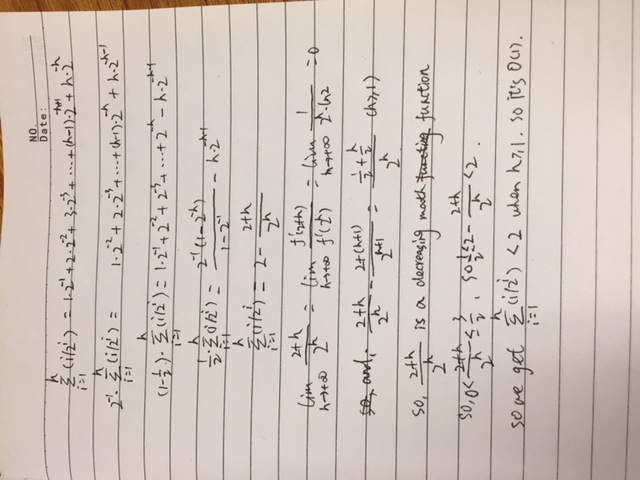 NO.
Date:
∑_{i=1}^{h} (i/2^i) = 1·2^{-1} + 2·2^{-2} + 3·2^{-3} + ··· + (h-1)·2^{-h+1} + h·2^{-h}
2^{-1}·∑_{i=1}^{h} (i/2^i) = 1·2^{-2} + 2·2^{-3} + ··· + (h-1)·2^{-h} + h·2^{-h-1}
(1-1/2)·∑_{i=1}^{h} (i/2^i) = 1·2^{-1} + 2^{-2} + 2^{-3} + ··· + 2^{-h} - h·2^{-h-1}
1/2·∑_{i=1}^{h} (i/2^i) = 2^{-1}(1-2^{-h})/(1-2^{-1}) - h·2^{-h-1}
∑_{i=1}^{h} (i/2^i) = 2 - (2+h)/2^h
lim_{h→+∞} (2+h)/2^h = lim_{h→+∞} f'(2+h)/f'(2^h) = lim_{h→+∞} 1/(2^h·ln2) = 0
and, (2+h)/2^h - (2+(h+1))/2^{h+1} = (1/2+h/2)/2^h (h≥1)
so, (2+h)/2^h is a decreasing math function
so, 0 < (2+h)/2^h ≤ 3/2, so 1/2 ≤ 2 - (2+h)/2^h < 2.
so we get ∑_{i=1}^{h} (i/2^i) < 2 when h≥1. so it's O(1).